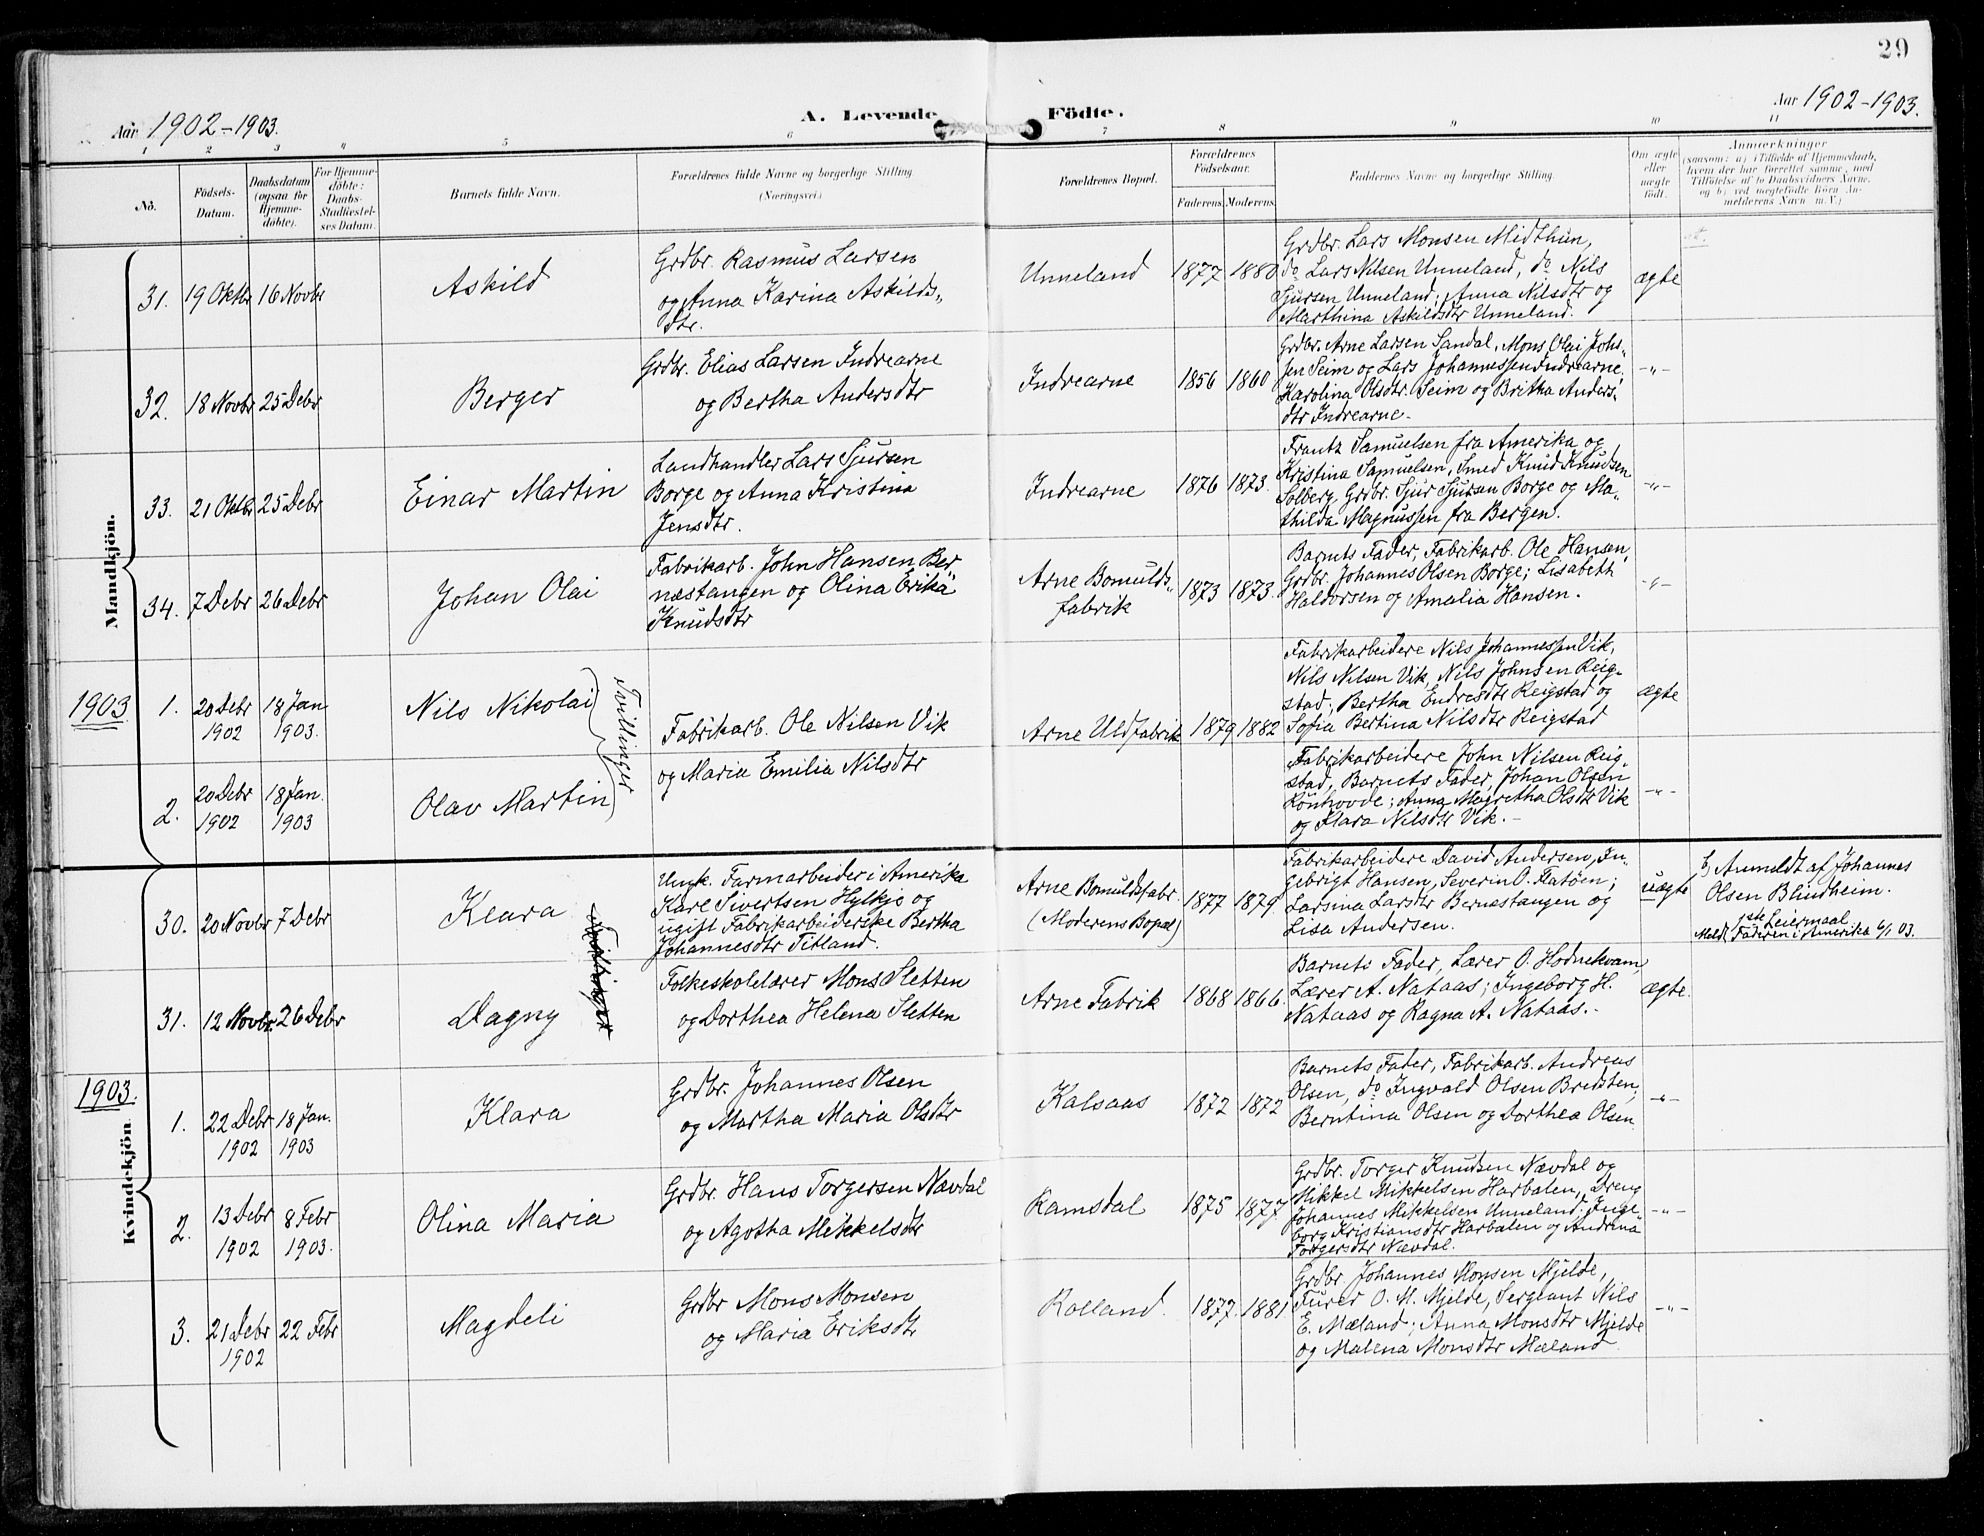 29
Aar 1902-1903.
A. Levende Födte.
Aar 1902-1903.
1 2 3 4 5 6 7 8 9 10 11
No.
Födsels-
Datum.
Daabsdatum
(ogsaa for
Hjemme-
døbte).
For Hjemme-
døbte:
Daabs-
Stadfæstel-
ses Datum.
Barnets fulde Navn.
Forældrenes fulde Navne og borgerlige Stilling
(Næringsvei).
Forældrenes Bopæl.
Forældrenes
Födselsaar.
Faderens. Moderens.
Faddernes Navne og borgerlige Stilling.
Om ægte
eller
uægte
födt.
Anmærkninger
(saasom: a) i Tilfælde af Hjemmedaab,
hvem der har forrettet samme, med
Tilföielse af to Daabsvidners Navne,
og b) ved uægtefödte Börn An-
melderens Navn m.V.)
Mandkjön.
31. 19 Oktbr 16 Novbr
Askild
Grdbr. Rasmus Larsen
og Anna Karina Askilds-
dtr.
Unneland
1877 1880
Grdbr. Lars Monsen Midthun,
do Lars Nilsen Unneland, do Nils
Sjursen Unneland; Anna Nilsdtr og
Marthina Askildsdtr Unneland.
ægte
32. 18 Novbr 25 Debr
Berger
Grdbr. Elias Larsen Indrearne
og Bertha Andersdtr
Indrearne
1856 1860
Grdbr. Arne Larsen Sandal, Mons Olai Johs-
sen Seim og Lars Johannessen Indrearne,
Karolina Olsdtr. Seim og Britha Anders-
dtr Indrearne.
-"-
33. 21 Oktbr 25 Debr
Einar Martin
Landhandler Lars Sjursen
Borge og Anna Kristina
Jensdtr.
Indrearne
1876 1873.
Frantz Samuelsen fra Amerika og
Kristina Samuelsen, Smed Knud Knudsen
Solberg, Grdbr. Sjur Sjursen Borge og Ma-
thilda Magnussen fra Bergen.
-"-
34. 7 Debr 26 Debr
Johan Olai
Fabrikarb. John Hansen Ber-
næstangen og Olina Erika
Knudsdtr
Arne Bomulds-
fabrik
1873 1873.
Barnets Fader, Fabrikarb. Ole Hansen,
Grdbr. Johannes Olsen Borge; Lisabeth
Haldorsen og Amalia Hansen.
-"-
1903
1. 20 Debr 18 Jan
1902 1903.
Nils Nikolai
Tvillinger
Fabrikarb. Ole Nilsen Vik
og Maria Emilia Nilsdtr
Arne Uldfabrik
1879 1882
Fabrikarbeidere Nils Johannessen Vik,
Nils Nilsen Vik, Nils Johnsen Reig-
stad; Bertha Endresdtr Reigstad og
Sofia Bertina Nilsdtr Reigstad
ægte
2. 20 Debr 18 Jan.
1902 1903
Olav Martin
Fabrikarbeidere John Nilsen Reig-
stad, Barnets Fader, Johan Olsen
Rönhovde; Anna Magretha Olsdtr Vik
og Klara Nilsdtr Vik.-
-"-
Kvindekjön.
30. 20 Novbr 7 Debr
Klara
Tvillinger
Ungk. Farmarbeider i Amerika
Karl Sivertsen Hylkje og
ugift Fabrikarbeiderske Bertha
Johannesdtr Titland.
Arne Bomuldsfabr.
(Moderens Bopæl)
1877 1879
Fabrikarbeidere David Andersen, In-
gebrigt Hansen, Severin O. Flatöen;
Larsina Larsdtr Bernæstangen og
Lisa Andersen.
uægte
b, Anmeldt af Johannes
Olsen Blindheim.
1ste Leiermaal
Meldt Faderen i Amerika 6/1 03.
31. 12 Novbr. 26 Debr
Dagny
Folkeskolelærer Mons Sletten
og Dorthea Helena Sletten
Arne Fabrik
1868 1866.
Barnets Fader, Lærer O. Hodnekvam,
Lærer A. Nataas; Ingeborg H.
Nataas og Ragna A. Nataas.-
ægte.
1903.
1. 22 Debr 18 Jan.
1902 1903
Klara
Grdbr. Johannes Olsen
og Martha Maria Olsdtr
Kalsaas
1872 1872
Barnets Fader, Fabrikarb. Andreas
Olsen, do Ingvald Olsen Bredsten,
Berntina Olsen og Dorthea Olsen
-"-
2. 13 Debr 8 Febr
1902 1903.
Olina Maria
Grdbr. Hans Torgersen Nævdal
og Agotha Mikkelsdtr
Ramsdal
1875 1877
Grdbr. Torger Knudsen Nævdal og
Mikkel Mikkelsen Harbalen, Dreng
Johannes Mikkelsen Unneland; Inge-
borg Kristiansdtr Harbalen og Andrina
Torgersdtr Nævdal.
-"-
3. 21 Debr 22 Febr
1902
Magdeli
Grdbr Mons Monsen
og Maria Eriksdtr
Rolland.
1877. 1881
Grdbr. Johannes Monsen Mjelde,
Furer O. M. Mjelde, Sergeant Nils
E. Mæland; Anna Monsdtr Mjelde
og Malena Monsdtr Mæland
-"-